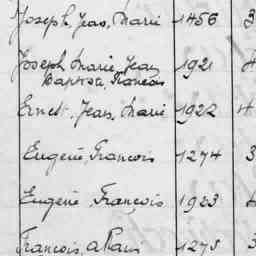 Joseph, Jean, Marie 1456 3
Joseph Marie, Jean 1921 4
Baptiste, François
Ernest, Jean, Marie 1922 4
Eugène, Francois 1274 3
Eugène, François 1923 4
François, 1273 3